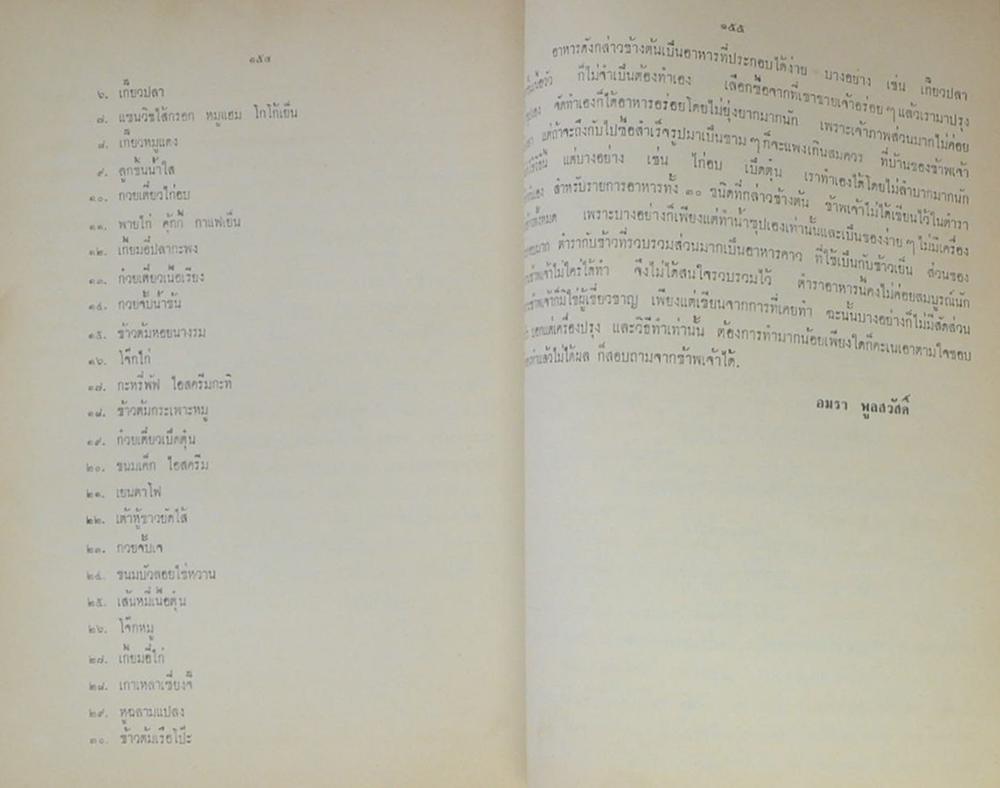 ๑๕๔
๖. เกี๊ยวปลา
๗. แซนวิชไส้กรอก หมูแฮม โกโก้เย็น
๘. เกี๊ยวหมูแดง
๙. ลูกชิ้นน้ำใส
๑๐. ก๋วยเตี๋ยวไก่อบ
๑๑. พายไก่ คุ้กกี้ กาแฟเย็น
๑๒. เกี้ยมอี๋ปลากะพง
๑๓. ก๋วยเตี๋ยวเนื้อเรียง
๑๔. กวยจั๊บน้ำข้น
๑๕. ข้าวต้มหอยนางรม
๑๖. โจ๊กไก่
๑๗. กะหรี่พัฟ ไอสครีมกะทิ
๑๘. ข้าวต้มกระเพาะหมู
๑๙. ก๋วยเตี๋ยวเป็ดตุ๋น
๒๐. ขนมเค้ก ไอสครีม
๒๑. เยนตาโฟ
๒๒. เต้าหู้ขาวยัดไส้
๒๓. กวยจั๊บเจ
๒๔. ขนมบัวลอยไข่หวาน
๒๕. เส้นหมี่เนื้อตุ๋น
๒๖. โจ๊กหมู
๒๗. เกี้ยมอี๋ไก่
๒๘. เกาเหลาเซี่ยงจี๊
๒๙. หูฉลามแปลง
๓๐. ข้าวต้มเรือโป๊ะ
๑๕๕
อาหารดังกล่าวข้างต้นเป็นอาหารที่ประกอบได้ง่าย บางอย่าง เช่น เกี๊ยวปลา
ก็ไม่จำเป็นต้องทำเอง เลือกซื้อจากที่เขาขายเจ้าอร่อย ๆ แล้วเรามาปรุง
จัดทำเองก็ได้อาหารอร่อยโดยไม่ยุ่งยากมากนัก เพราะเจ้าภาพส่วนมากไม่ค่อย
แต่ถ้าจะถึงกับไปซื้อสำเร็จรูปมาเป็นชาม ๆ ก็จะแพงเกินสมควร ที่บ้านของข้าพเจ้า
แต่บางอย่าง เช่น ไก่อบ เป็ดตุ๋น เราทำเองได้โดยไม่ลำบากมากนัก
สำหรับรายการอาหารทั้ง ๓๐ ชนิดที่กล่าวข้างต้น ข้าพเจ้าไม่ได้เขียนไว้ในตำรา
เพราะบางอย่างก็เพียงแต่ทำน้ำซุปเองเท่านั้นและเป็นของง่าย ๆ ไม่มีเครื่อง
ตำรากับข้าวที่รวบรวมส่วนมากเป็นอาหารคาว ที่ใช้เป็นกับข้าวเย็น ส่วนของ
ข้าพเจ้าไม่ใคร่ได้ทำ จึงไม่ได้สนใจรวบรวมไว้ ตำราอาหารนี้คงไม่ค่อยสมบูรณ์นัก
ข้าพเจ้าก็มิใช่ผู้เชี่ยวชาญ เพียงแต่เขียนจากการที่เคยทำ ฉะนั้นบางอย่างก็ไม่มีสัดส่วน
บอกแต่เครื่องปรุง และวิธีทำเท่านั้น ต้องการทำมากน้อยเพียงใดก็คะเนเอาตามใจชอบ
ทำแล้วไม่ได้ผล ก็สอบถามจากข้าพเจ้าได้.
อมรา พูลสวัสดิ์